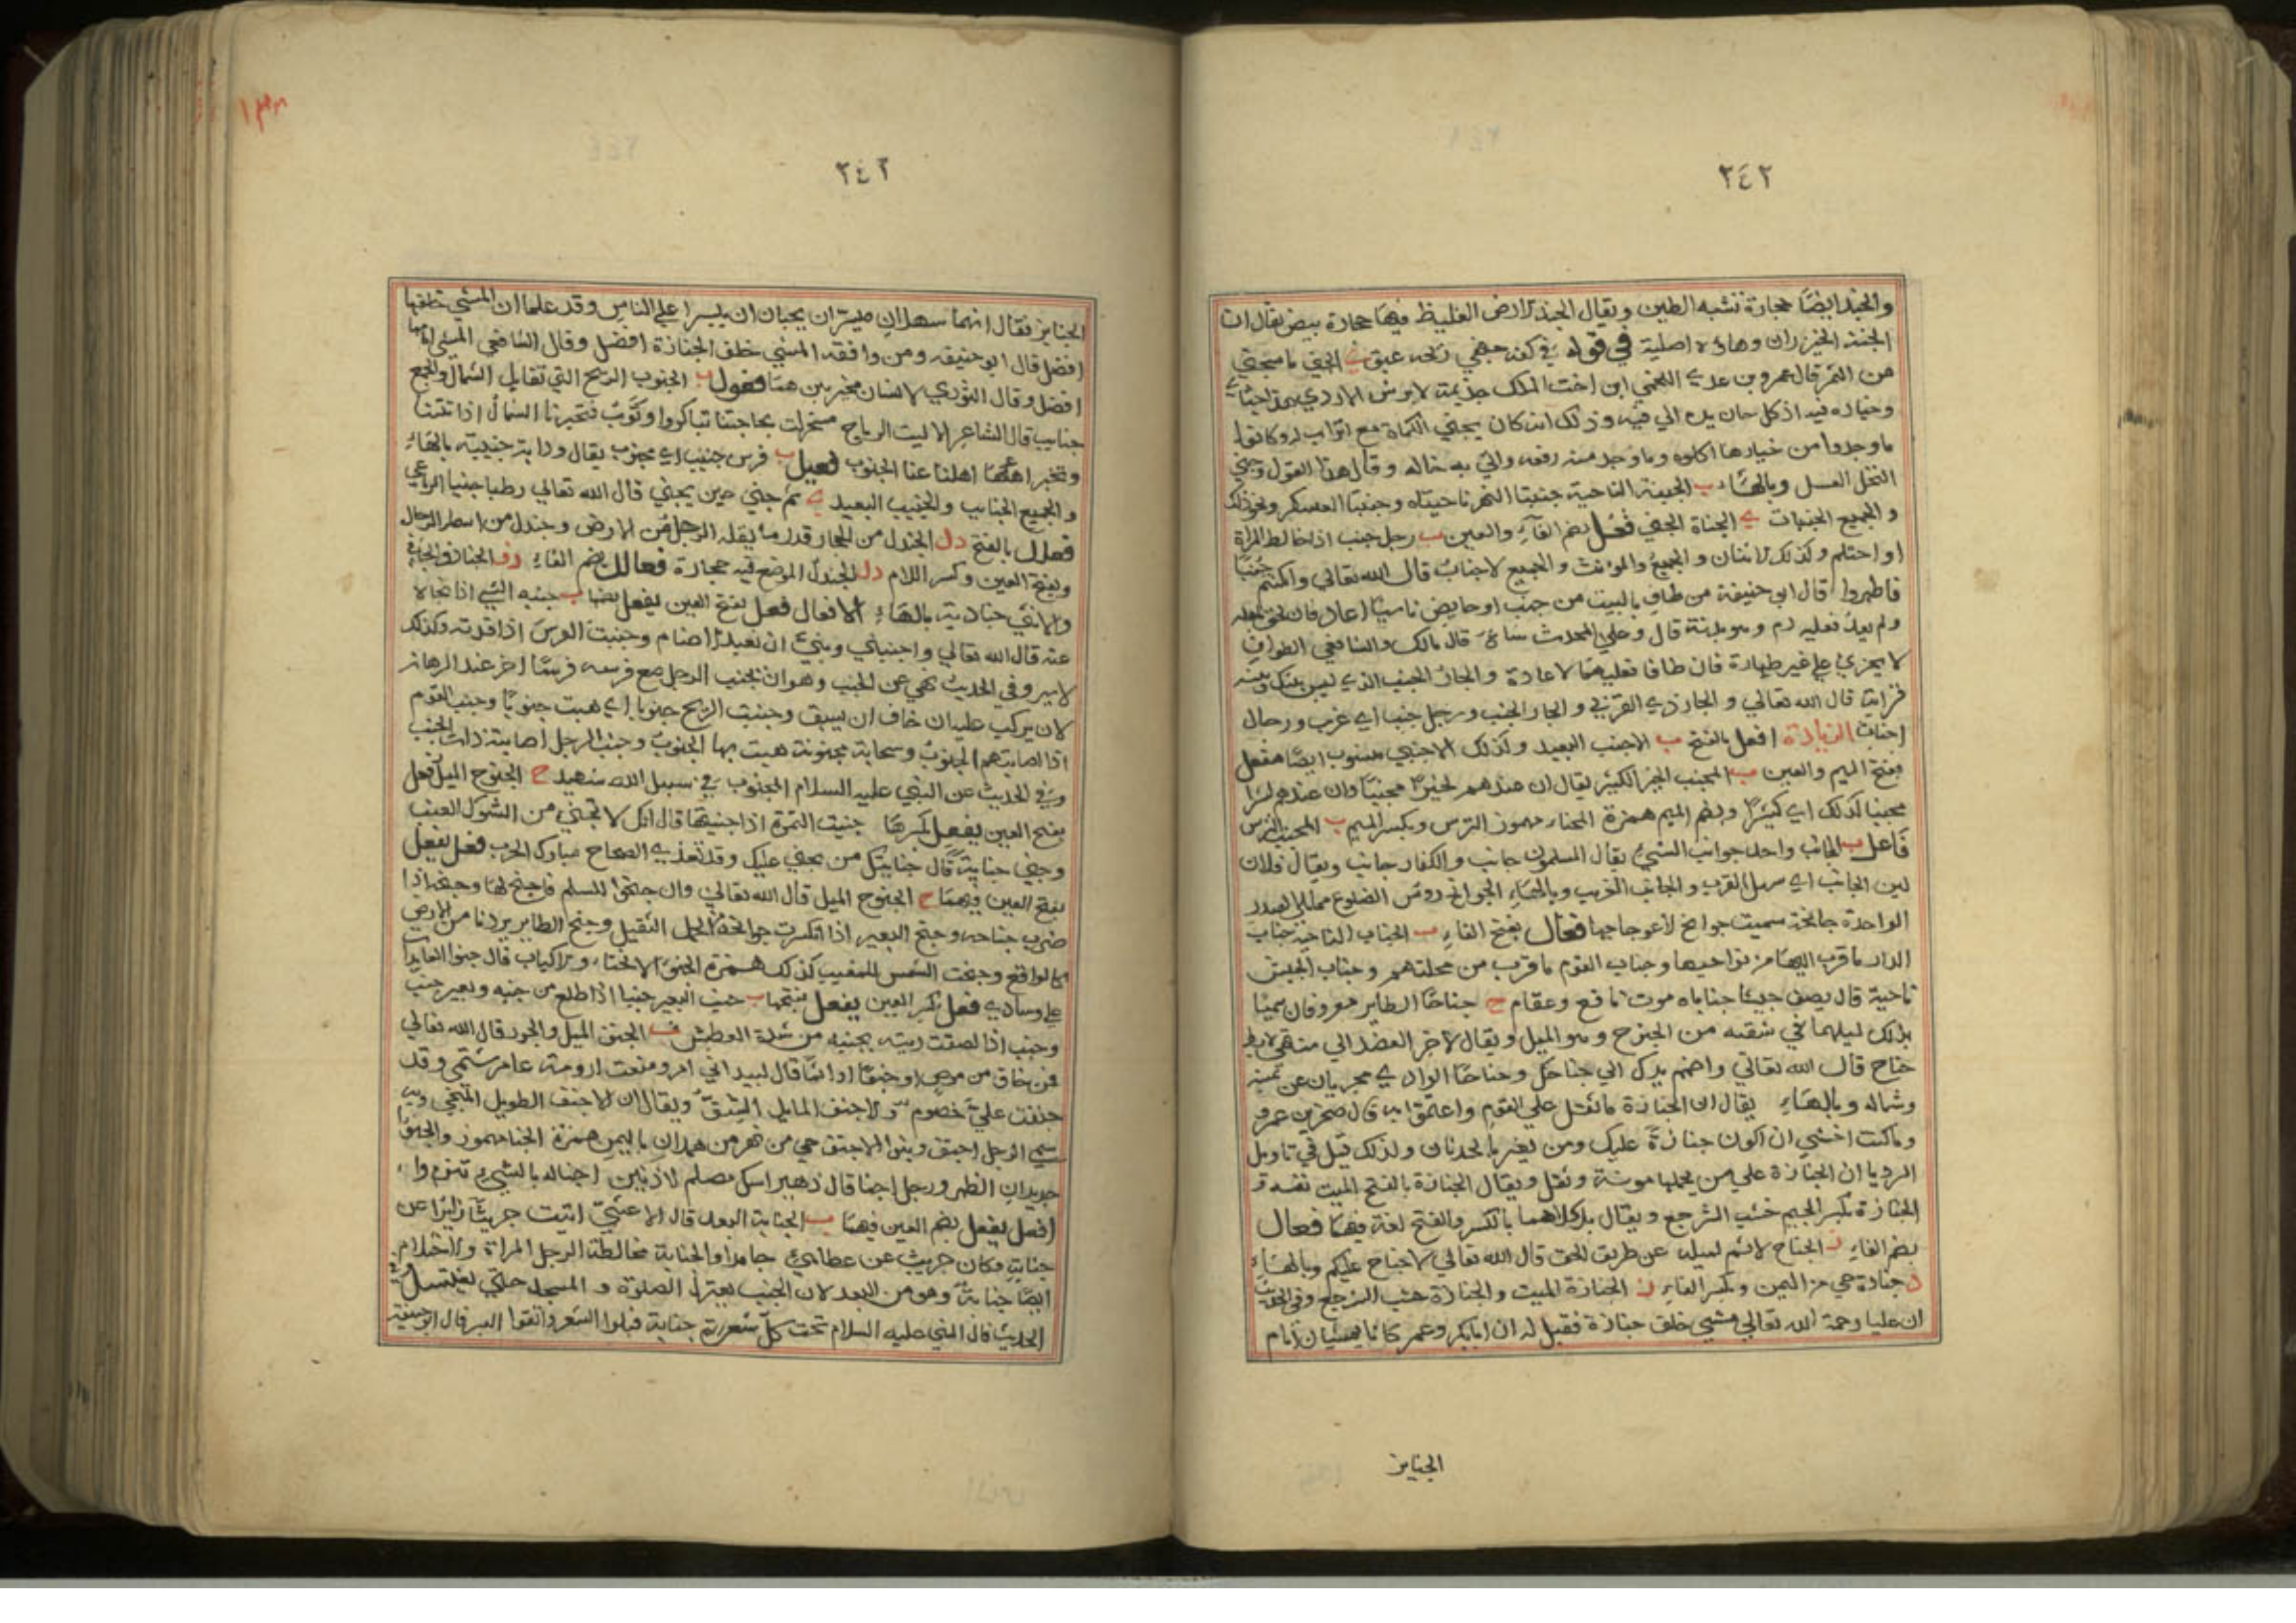 ٢٤٢
والجند ايضًا حجارة تشبه الطين ويقال الجند الارض الغليظ فيها حجارة بيض يقال ان
الجنة الخيزران وهاؤه اصلية في قوله في كفه جهني ريحه عبق ي الجني ما يجتني
من الثمر قال عمرو بن عدي اللخمي ابن اخت الملك جذيمة الابرش الازدي هذا جناي
وخياره فيه اذ كل جان يده الي فيه وذلك انه كان يجني الكماة مع اتراب له وكانوا
ما وجدوا من خيارها اكلوه وما وجد منه رفعه واتي به خاله وقال هذا القول وجني
النحل العسل وبالهاء ب الجنبة الناحية جنبتا النهر ناحيتاه وجنبتا العسكر ونحو ذلك
والجميع الجنبات ي الجناة الجني فُعُل بضم الفاء والعين ب رجل جنب اذا خالط المراة
او احتلم وكذلك الاثنان والجميع والمونث والجميع الاجناب قال الله تعالي وان كنتم جنبًا
فاطهروا قال ابو حنيفة من طاف بالبيت من جنب او حايض ناسيًا اعاد فان لحق باهله
ولم يعد فعليه دم وهو بدنة قال وعلي المحدث شاة قال مالك والشافعي الطواف
لا يجزئ علي غير طهارة فان طافا فعليهما الاعادة والجار الجنب الذي ليس بينك وبينه
قرابة قال الله تعالي والجار ذي القربي والجار الجنب ورجل جنب اي غريب ورجال
اجناب الزيادة افعل بالفتح ب الاجنب البعيد وكذلك الاجنبي منسوب ايضًا مفعل
بفتح الميم والعين ب المجنب الخير الكثير يقال ان عندهم لخيرًا مجنبًا وان عندهم لشرا
مجنبا كذلك اي كثيرًا وبضم الميم همزة المجناء مهموز الترس وبكسر الميم ب المجنب الترس
فاعل ب الجانب واحد جوانب الشيء يقال المسلمون جانب والكفار جانب ويقال فلان
لين الجانب اي سهل القرب والجانب الغريب وبالهاء الجوانح رؤس الضلوع مما يلي الصدر
الواحدة جانحة سميت جوانح لاعوجاجها فعال بفتح الفاء ب الجناب الناحية جناب
الدار ما قرب اليها من نواحيها وجناب القوم ما قرب من محلتهم وجناب الجيش
ناحية قال يصف جيشا جناباه موت ناقع وعقام ح جناحا الطاير معروفان سميا
بذلك لميلهما في شقيه من الجنوح وهو الميل ويقال لاخر العضد الي منتهي الابط
جناح قال الله تعالي واضمم يدك الي جناحك وجناحا الوادي مجريان عن يمينه
وشماله وبالهاء يقال ان الجنازة ما ثقل علي القوم واغتموا به قال صخر بن عمرو
وما كنت اخشي ان اكون جنازة عليك ومن يغتر بالحدثان ولذلك قيل في تاويل
الرديا ان الجنازة علي من يحملها مونة وثقل ويقال الجنازة بالفتح الميت نفسه و
الجنازة بكسر الجيم خشب الشرجع ويقال بل كلاهما بالكسر والفتح لغة فيهما فعال
بضم الفاء ح الجناح الاثم لميله عن طريق الحق قال الله تعالي لا جناح عليكم وبالهاء
د جنادة حي من اليمن وبكسر الفاء ز الجنازة الميت والجنازة خشب الشرجع وفي الحديث
ان عليا رحمة الله تعالي مشي خلف جنازة فقيل له ان ابا بكر وعمر كانا يمشيان امام
الجنايز
١٣٣
٢٤٢
الجنايز فقال انهما سهلان ميسران يحبان ان ييسرا علي الناس وقد علما ان المشي خلفها
افضل قال ابو حنيفه ومن وافقه المشي خلف الجنازة افضل وقال الشافعي المشي امامها
افضل وقال الثوري الانسان مخير بين هما فعول ب الجنوب الريح التي تقابل الشمال والجمع
جنايب قال الشاعر الا ليت الرياح مسخرات بحاجتنا تباكروا وتؤب فتخبرنا الشمال اذا تتنا
وتخبر اهلها اهلنا عنا الجنوب فعيل ب فرس جنيب اي مجنوب يقال ودابة جنيبة بالهاء
والجميع الجنايب والجنيب البعيد ي ثمر جني حين يجني قال الله تعالي رطبا جنيا الرباعي
فعلل بالفتح دل الجندل من الحجار قدر ما يقله الرجل من الارض وجندل من اسماء الرجال
وبفتح العين وكسر اللام دل الجندل الموضع فيه حجارة فعالل بضم الفاء دف الجنادف الجافي
والانثي جنادية بالهاء الافعال فعل بفتح العين يفعل بضمها ب جنبه الشيء اذا نحاه
عنه قال الله تعالي واجنبني وبني ان نعبد الاصنام وجنبت الفرس اذا قدته وكذلك
الاسير وفي الحديث نهي عن الجنب وهو ان يجنب الرجل مع فرسه فرسًا اخر عند الرهان
لان يركب عليه ان خاف ان يسبق وجنبت الريح جنوبا اي هبت جنوبًا وجنب القوم
اذا اصابتهم الجنوب وسحابة مجنوبة هبت بها الجنوب وجنب الرجل اصابته ذات الجنب
وفي الحديث عن النبي عليه السلام المجنوب في سبيل الله شهيد ح الجنوح الميل فعل
بفتح العين يفعل بكسرها جنيت الثمرة اذا جنيتها قال انك لا تجني من الشوك العنب
وجني جناية قال جانيك من يجني عليك وقد تعدي الصحاح مبارك الجرب فعل يفعل
بفتح العين فيهما ح الجنوح الميل قال الله تعالي وان جنحوا للسلم فاجنح لها وجنحه اذا
ضرب جناحه وجنح البعير اذا انكسرت جوانحه من الحمل الثقيل وجنح الطاير يردنا من الارض
كالواقع وجنحت الشمس للمغيب كذلك همزة الجنوء الانحناء والاكباب قال جنوا العايدات
علي وسادي فعل بكسر العين يفعل بفتحها ب جنب البعير جنبا اذا ظلع من جنبه وبعير جنب
وجنب اذا لصقت ريته بجنبه من شدة العطش ف الجنف الميل والجور قال الله تعالي
فمن خاف من موص جنفًا او اثمًا قال لبيد اني امرو منعت ارومة عامر شتمي وقد
جنفت عليّ خصوم والاجنف المايل الشق ويقال ان الاجنف الطويل المنحني وبه
سمي الرجل اجنف وبنو الاجنف حي من نهر من همدان باليمن همزة الجنا مهموز والجنوء
حديدان الظهر ورجل اجنا قال زهير اسك مصلم الاذنين اجنا له بالسيء تنوم وآء
افعل يفعل بضم العين فيهما ب الجنابة البعد قال الاعشي اتيت حريثًا زايرًا عن
جنابة فكان حريث عن عطايء جامدا والجنابة مخالطة الرجل المراة والاحتلام
ايضًا جنابة وهو من البعد لان الجنب يعتزل الصلوة والمسجد حتي يغتسل وفي
الحديث قال النبي عليه السلام تحت كل شعرة جنابة فبلوا الشعر وانقوا البشر قال ابو حنيفة